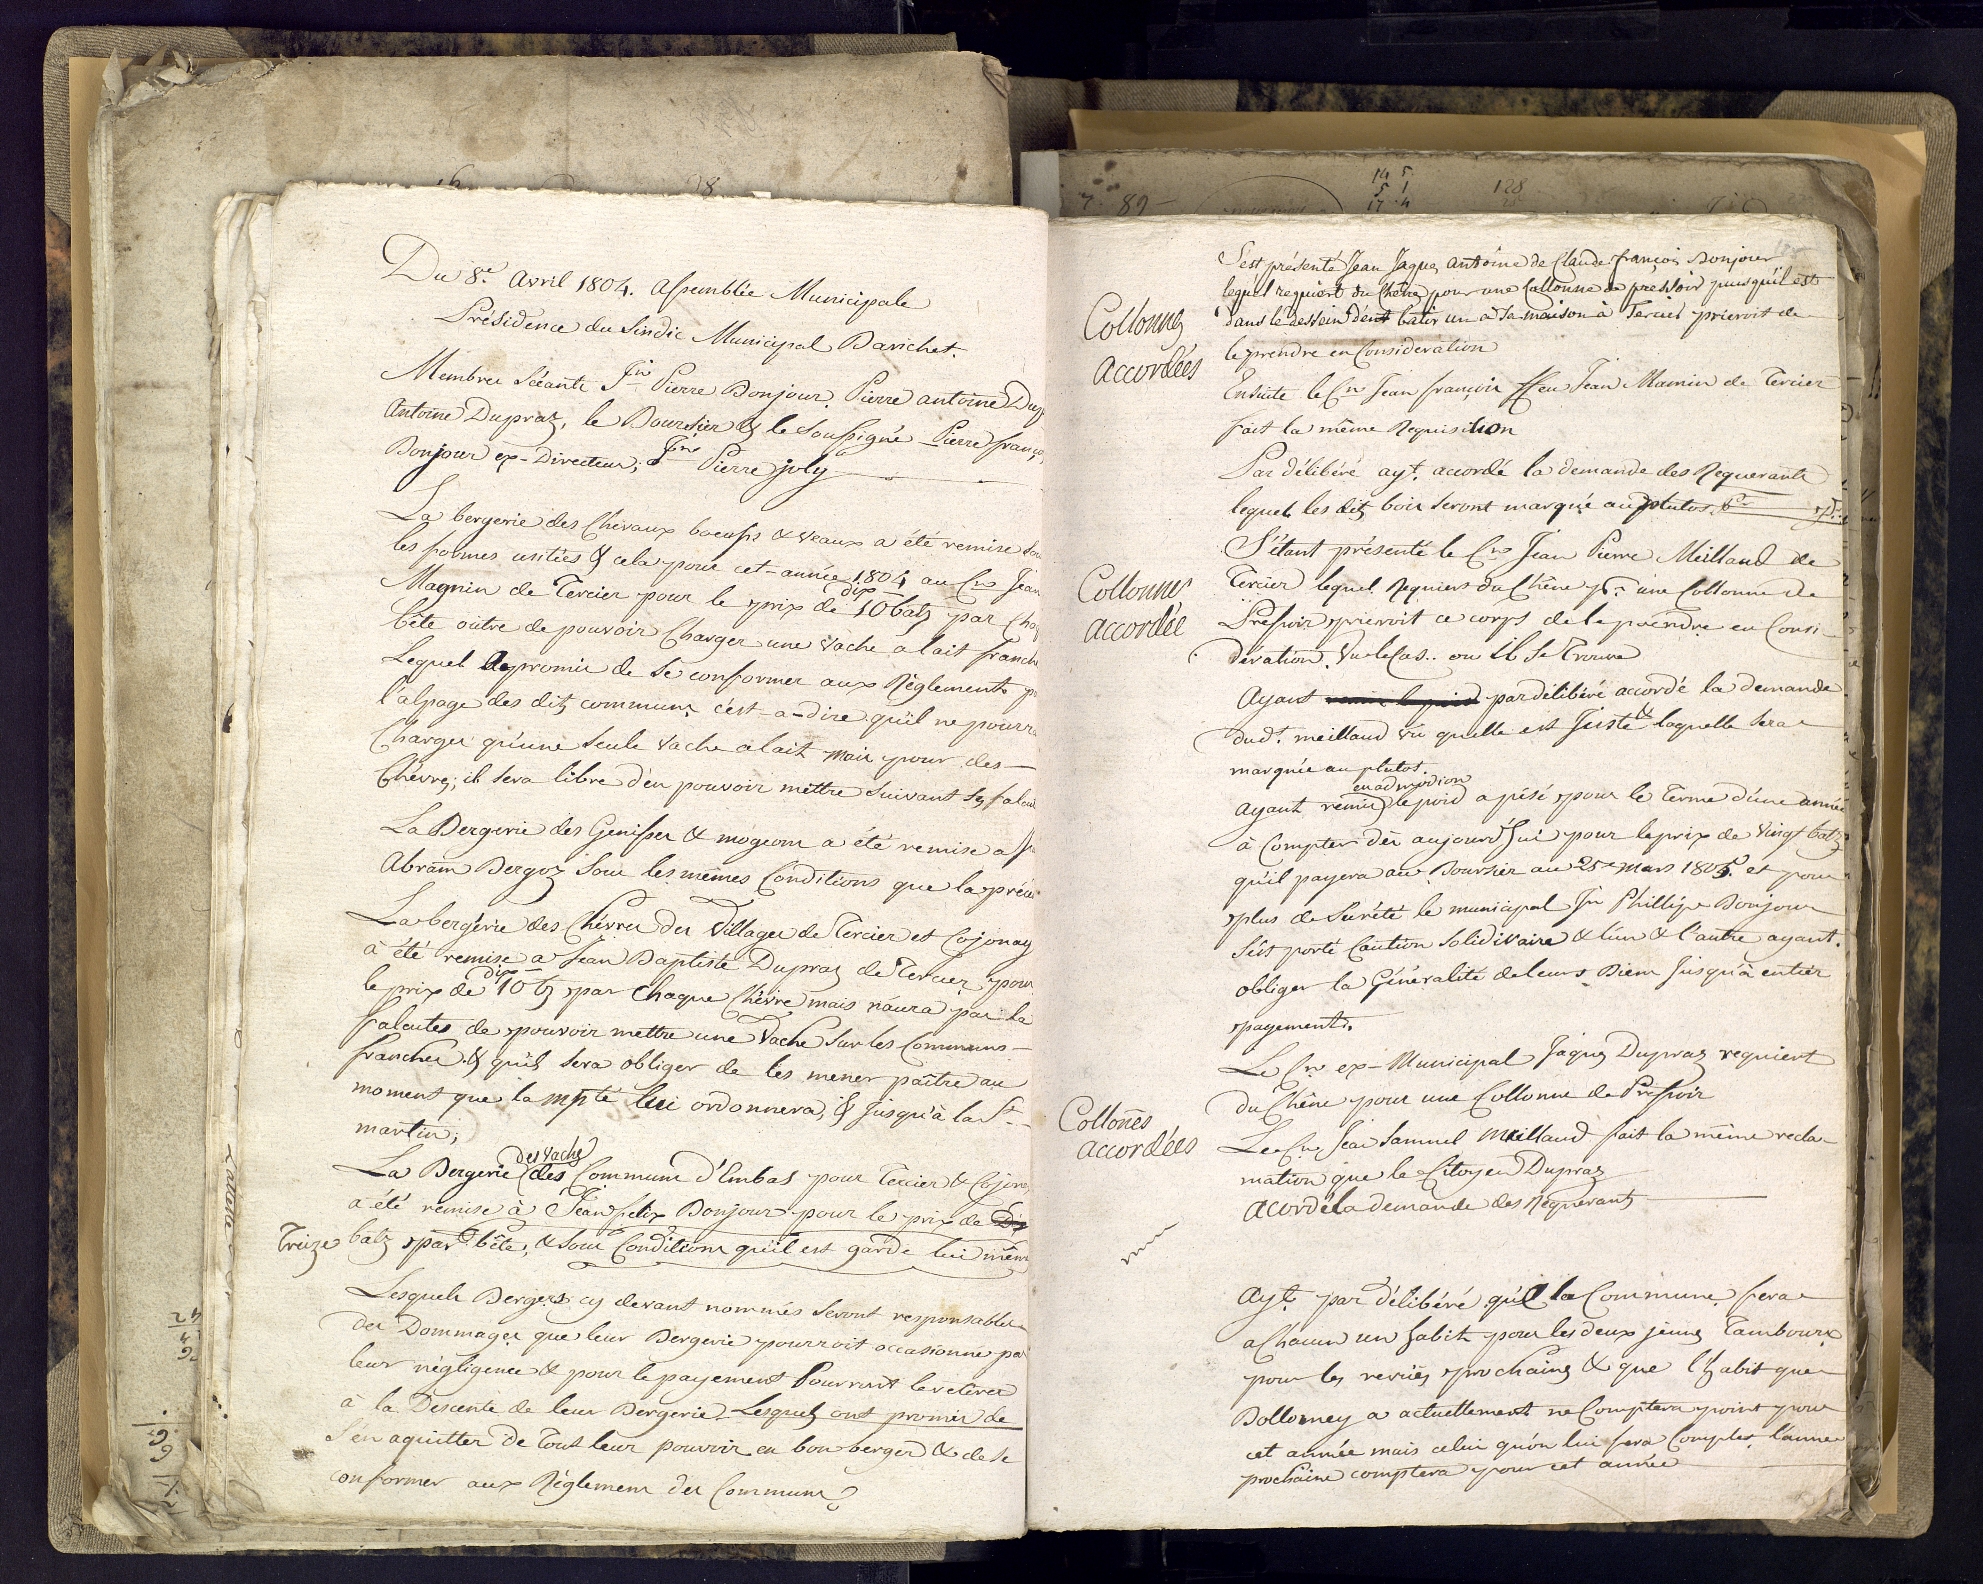 Du 8.e Avril 1804. Assemblée Municipale
Présidence du Sindic Municipal Barichet.
Membres Séants Jn Pierre Bonjour. Pierre antoine Dup
Antoine Dupraz, le Boursier & le Soussigné Pierre franço
Bonjour ex-Directeur; Jn Pierre joly
La bergerie des Chevaux boeufs & veaux a été remise Sou
les formes usitées & cela pour cet-année 1804 au Cn Jean
Magnin de Tercier pour le prix de dix 10 batz par Cha
bête outre de pouvoir Charger une vache a lait franche
Lequel a promis de se conformer aux Règlements p
l'alpage des dits communs c'est-a-dire qu'il ne pourra
Charger qu'une Seule vache alait mais pour des
Chèvres; il sera libre d'en pouvoir mettre suivant Ses falcu
La Bergerie des Genisses & mogeons a été remise a
Abram Bergoz Sous les mêmes Conditions que la préce
La bergerie des Chévres des Villages de Tercier et Cojonay
à été remise a Jean Baptiste Dupraz de Tercier pour
le prix de dix 10 bz par chaque Chèvre mais n'aura pas la
falcutes de pouvoir mettre une Vache Sur les Communs
franches & qu'il sera obliger de les mener paître au
moment que la mpté lui ordonnera, & Jusqu'à la St
martin;
La Bergerie des Vaches des Communs d'Embas pour Tercier & Cojon
a été remise à Jean felix Bonjour pour le prix de Dix
Treize batz par bête, & sous Conditions qu'il est garde lui mêm
Lesquels Bergers cy devant nommés seront responsables
des Dommages que leur Bergerie pourroit occasionne pa
leur négligence & pour le payement Pourront le retirer
à la Descente de leur Bergerie. Lesquels ont promis de
S'en aquitter de Tout leur pouvoir en bon berger & de se
conformer aux Règlement des Communs
Collonnes
accordées
S'est présenté Jean Jaques antoine de Claude françois Bonjour
lequel requiert du Chêne pour une Collonne de pressoir puisqu'il est
dans le dessein d'ent batir un a sa maison à Tercier prieroit de
le prendre en Consideration
Ensuite le Cn Jean françois ffeu Jean Mamin de Tercier
fait la même Requisition
Par délibéré ayt. accordé la demande des Requerants
lequel les dits bois seront marqué au plutos.
Collonnes
accordée
S'étant présenté le Cn Jean Pierre Meilland de
Tercier lequel Requiers du Chêne pr. une Collonne de
Pressoir prieroit ce corps de le prendre en Consi-
dération. Vu le Cas.. ou il Se Trouve
Ayant remis le poid par délibéré accordé la demande
dudt. meilland vu quelle est Juste & laquelle sera
marquée au plutot.
Ayant remis en admodion le poid a pésé pour le Terme d'une année
à Compter dès aujourd'hui pour le prix de Vingt batz
qu'il payera au Boursier au 25e mars 1805. et pour
plus de Sureté le municipal Jn Phillipe Bonjour
S'est porté Caution Solidivaire & l'un & l'autre ayant
obliger la Généralité de leurs Biens Jusqu'à entier
payement.
Le Cn ex-Municipal Jaques Dupraz requient
du Chêne pour une Collonne de Pressoir
Collones
accordées
Le Cn Jean Samuel Meilland fait la même recla-
mation que le Citoyen Dupraz
acordé la demande des Requerants
Ayt. par délibéré qu'e la Commune fera
a Chacun un habit pour les deux jeunes Tambours
pour les revües prochaines & que l'habit que
Bollomey a actuellement ne Comptera point pour
cet année mais celui qu'on lui fera Comptes l'année
prochaine comptera pour cet année